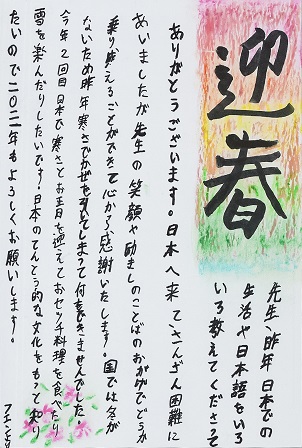 迎春
先生、昨年日本での
生活や日本語をいろ
いろ教えてくださって
ありがとうございます。日本へ来てさんざん困難に
あいましたが先生の笑顔や励ましのことばのおかげでどうか
乗り越えることができて心から感謝いたします。国では冬が
ないため昨年寒さでかぜを引いてしまって きませんでした。
今年2回目日本で寒さとお正月を迎えておセッチ料理を食べたり
雪を楽んだりしたいです!日本のでんとう的な文化をもっと知り
たいので二〇二一年もよろしくお願いします。